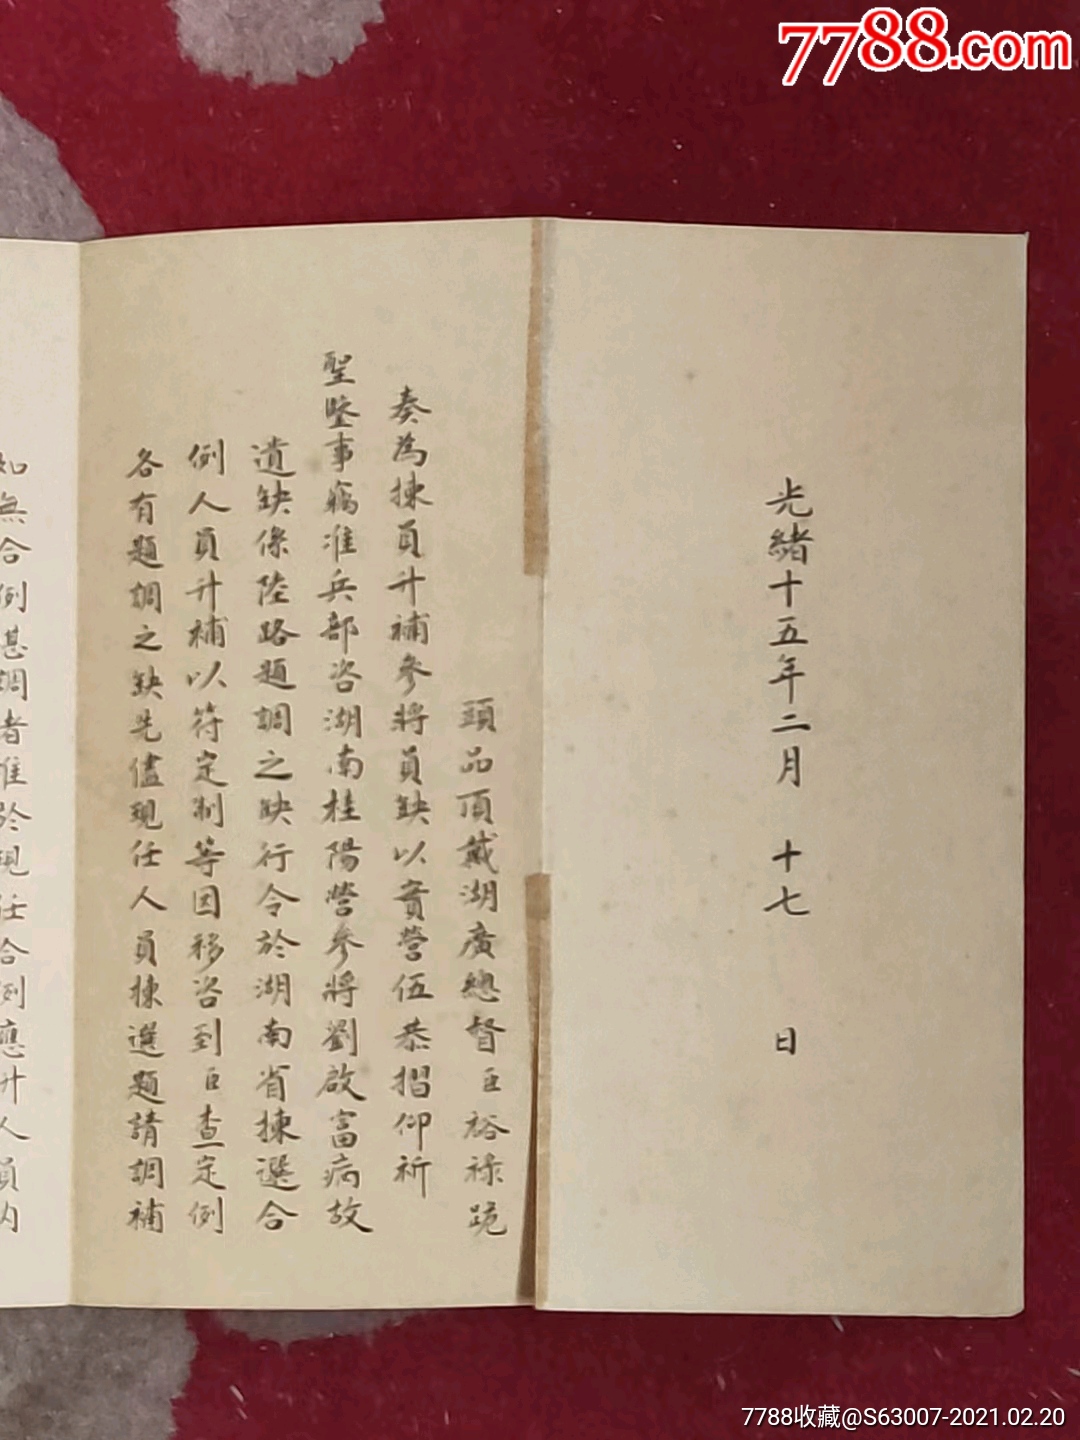 7788.com
光緒十五年二月 十七 日
頭品頂戴湖廣總督臣裕祿跪
奏為揀員升補參將員缺以實營伍恭摺仰祈
聖鑒事竊准兵部咨湖南桂陽營參將劉啟富病故
遺缺係陸路題調之缺行令於湖南省揀選合
例人員升補以符定制等因移咨到臣查定例
各有題調之缺先儘現任人員揀選題請調補
如無合例堪調者准於現任合例應升人員內
7788收藏@S63007-2021.02.20